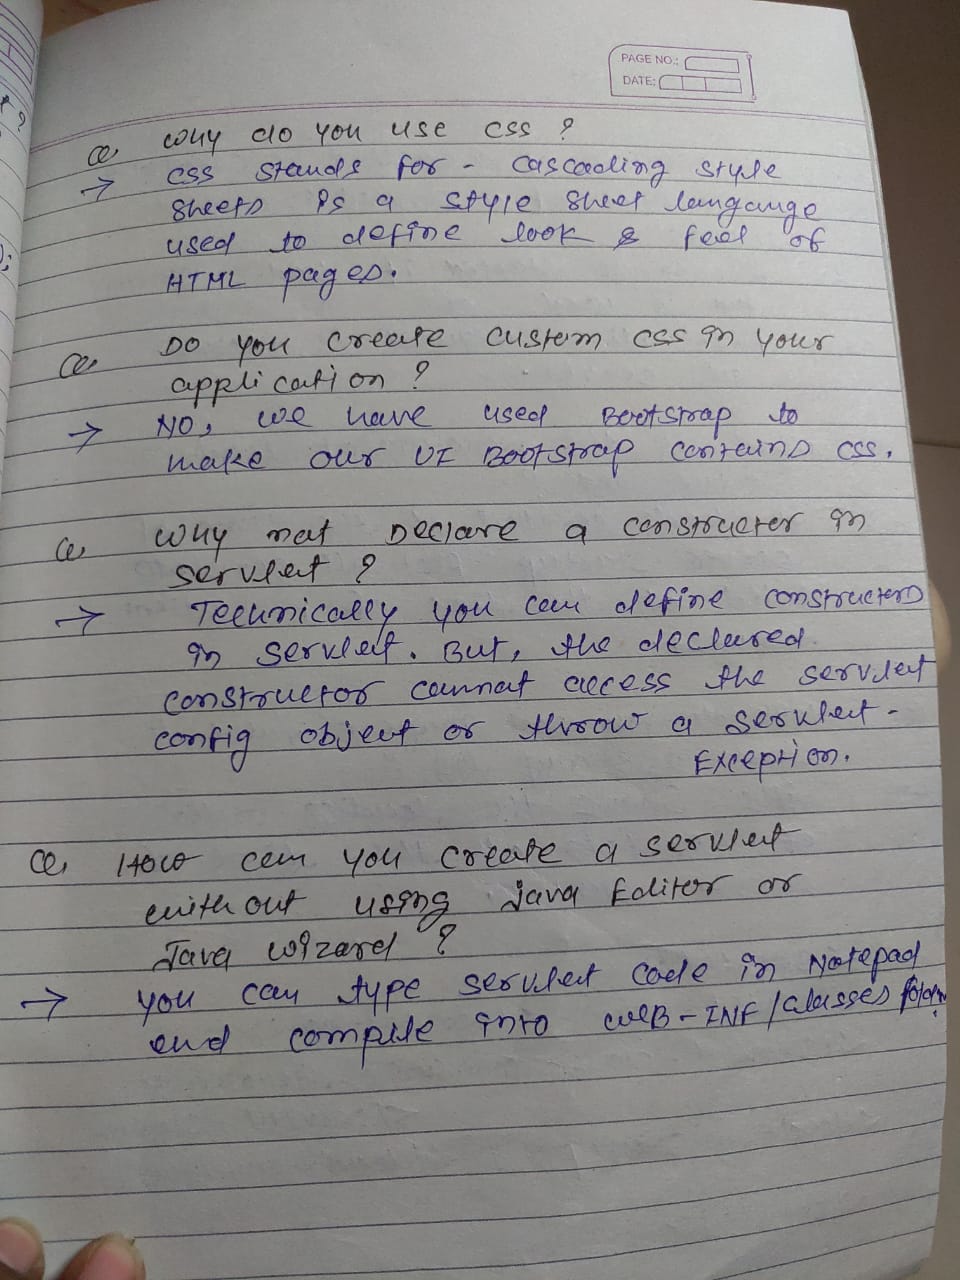 PAGE NO.:
DATE:
Q, Why do you use CSS ?
→ CSS stands for - Cascading style
sheets is a style sheet langauge
used to define look & feel of
HTML pages.
Q, Do you create custom CSS in your
application ?
→ NO, we have used Bootstrap to
make our UI Bootstrap contains CSS.
Q, Why not Declare a constructer in
servlet ?
→ Technically you can define constructers
in servlet. But, the declared
constructor cannot access the servlet
config object or throw a servlet-
Exception.
Q, How can you create a servlet
without using Java Editor or
Java wizard ?
→ you can type servlet code in Notepad
and compile into WEB-INF/classes folder.